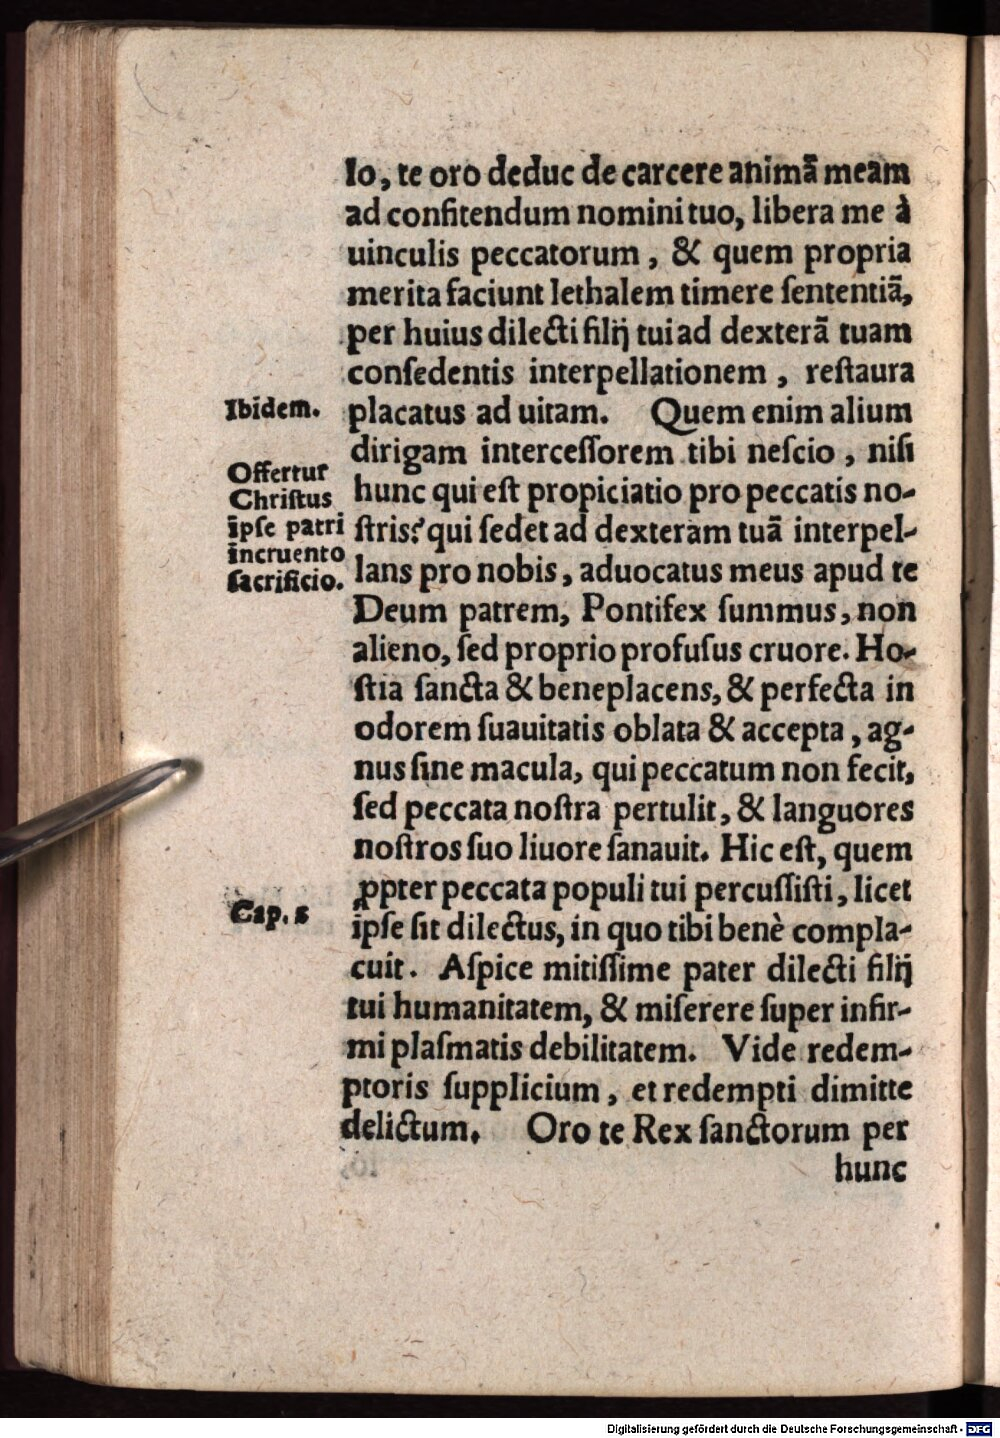 lo, te oro deduc de carcere animā meam
ad confitendum nomini tuo, libera me à
uinculis peccatorum, & quem propria
merita faciunt lethalem timere ſententiā,
per huius dilecti filij tui ad dexterā tuam
conſedentis interpellationem, reſtaura
Ibidem.
placatus ad uitam. Quem enim alium
dirigam interceſſorem tibi neſcio, niſi
Offertur
Chriſtus
īpſe patri
īncruento
ſacrificio.
hunc qui eſt propiciatio pro peccatis no-
ſtris? qui ſedet ad dexteram tuā interpel-
lans pro nobis, aduocatus meus apud te
Deum patrem, Pontifex ſummus, non
alieno, ſed proprio profuſus cruore. Ho-
ſtia ſancta & beneplacens, & perfecta in
odorem ſuauitatis oblata & accepta, ag-
nus ſine macula, qui peccatum non fecit,
ſed peccata noſtra pertulit, & languores
noſtros ſuo liuore ſanauit. Hic eſt, quem
ꝓpter peccata populi tui percuſſiſti, licet
Cap. 5
ipſe ſit dilectus, in quo tibi benè compla-
cuit. Aſpice mitiſſime pater dilecti filij
tui humanitatem, & miſerere ſuper infir-
mi plaſmatis debilitatem. Vide redem-
ptoris ſupplicium, et redempti dimitte
delictum. Oro te Rex ſanctorum per
hunc
Digitalisierung gefördert durch die Deutsche Forschungsgemeinschaft - DFG